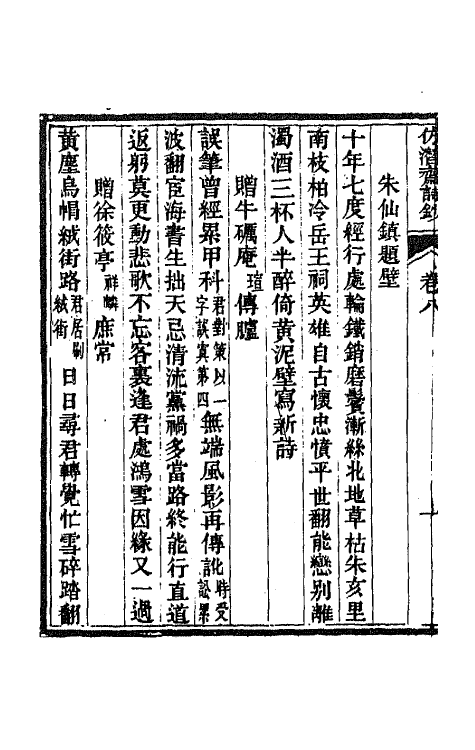 仿潛齋詩鈔 卷八 一
朱仙鎮題壁
十年七度經行處輪鐵銷磨鬢漸絲北地草枯朱亥里
南枝柏冷岳王祠英雄自古懷忠憤平世翻能戀別離
濁酒三杯人半醉倚黃泥壁寫新詩
贈牛礪庵瑄傳臚
誤筆曾經累甲科君對策以一字誤寘第四無端風影再傳訛時受訟累
波翻宦海書生拙天忌清流黨禍多當路終能行直道
返躬莫更動悲歌不忘客裏逢君處鴻雪因緣又一過
贈徐筱亭祥麟庶常
黃塵烏帽絨街路君居刷絨街日日尋君轉覺忙雪碎踏翻